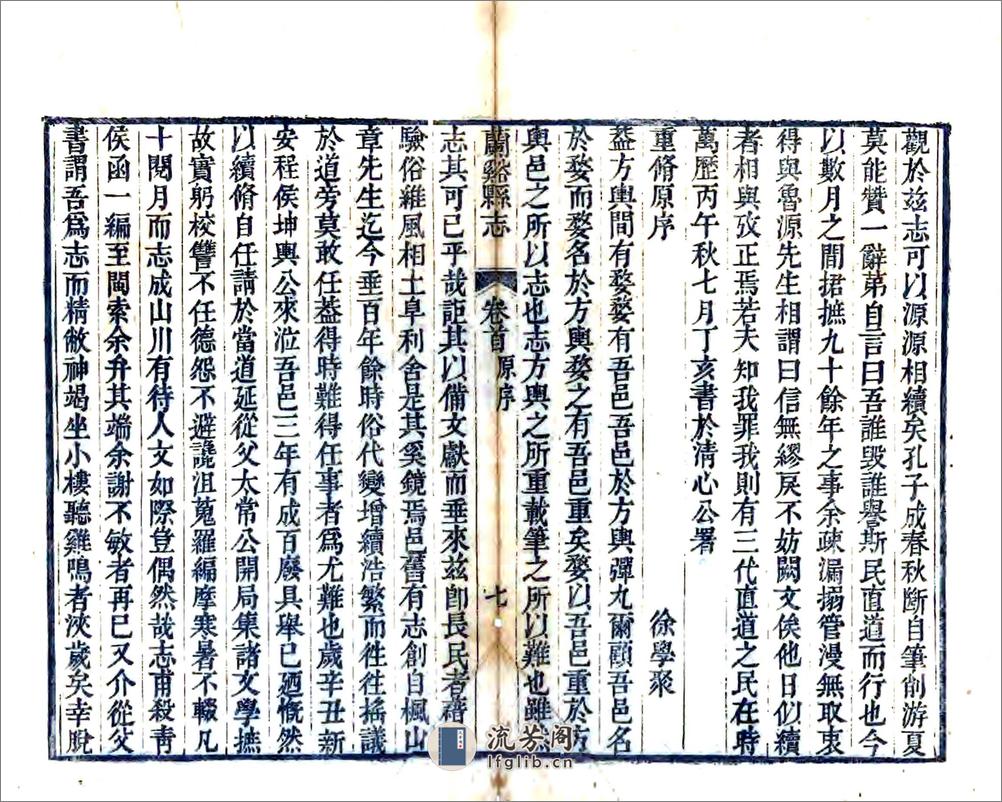 觀於茲志可以源源相續矣孔子成春秋斷自筆削游夏
莫能贊一辭第自言曰吾誰毀誰譽斯民直道而行也今
以數月之間捃摭九十餘年之事余疎漏搦管漫無取衷
得與魯源先生相謂曰信無繆戾不妨闕文俟他日似續
者相與攷正焉若夫知我罪我則有三代直道之民在時
萬歷丙午秋七月丁亥書於清心公署
重脩原序
徐學聚
葢方輿間有婺婺有吾邑吾邑於方輿彈丸爾顧吾邑名
於婺而婺名於方輿婺之有吾邑重矣婺以吾邑重於方
輿邑之所以志也志方輿之所重載筆之所以難也雖
志其可已乎哉詎其以備文獻而垂來茲卽長民者藉
蘭谿縣志
卷首
原序
七
驗俗維風相土阜利舍是其奚鏡焉邑舊有志創自楓山
章先生迄今垂百年餘時俗代變增續浩繁而徃徃搖議
於道旁莫敢任葢得時難得任事者爲尤難也歲辛丑新
安程侯坤輿公來涖吾邑三年有成百廢具舉已廼慨然
以續脩自任請於當道延從父太常公開局集諸文學摭
故實躬校讐不任德怨不避譭沮蒐羅編摩寒暑不輟凡
十閱月而志成山川有待人文如際豈偶然哉志甫殺靑
侯函一編至閩索余弁其端余謝不敏者再已又介從父
書謂吾爲志而精敝神竭坐小樓聽雞鳴者浹歲矣幸脫
流芳阁
lfglib.cn